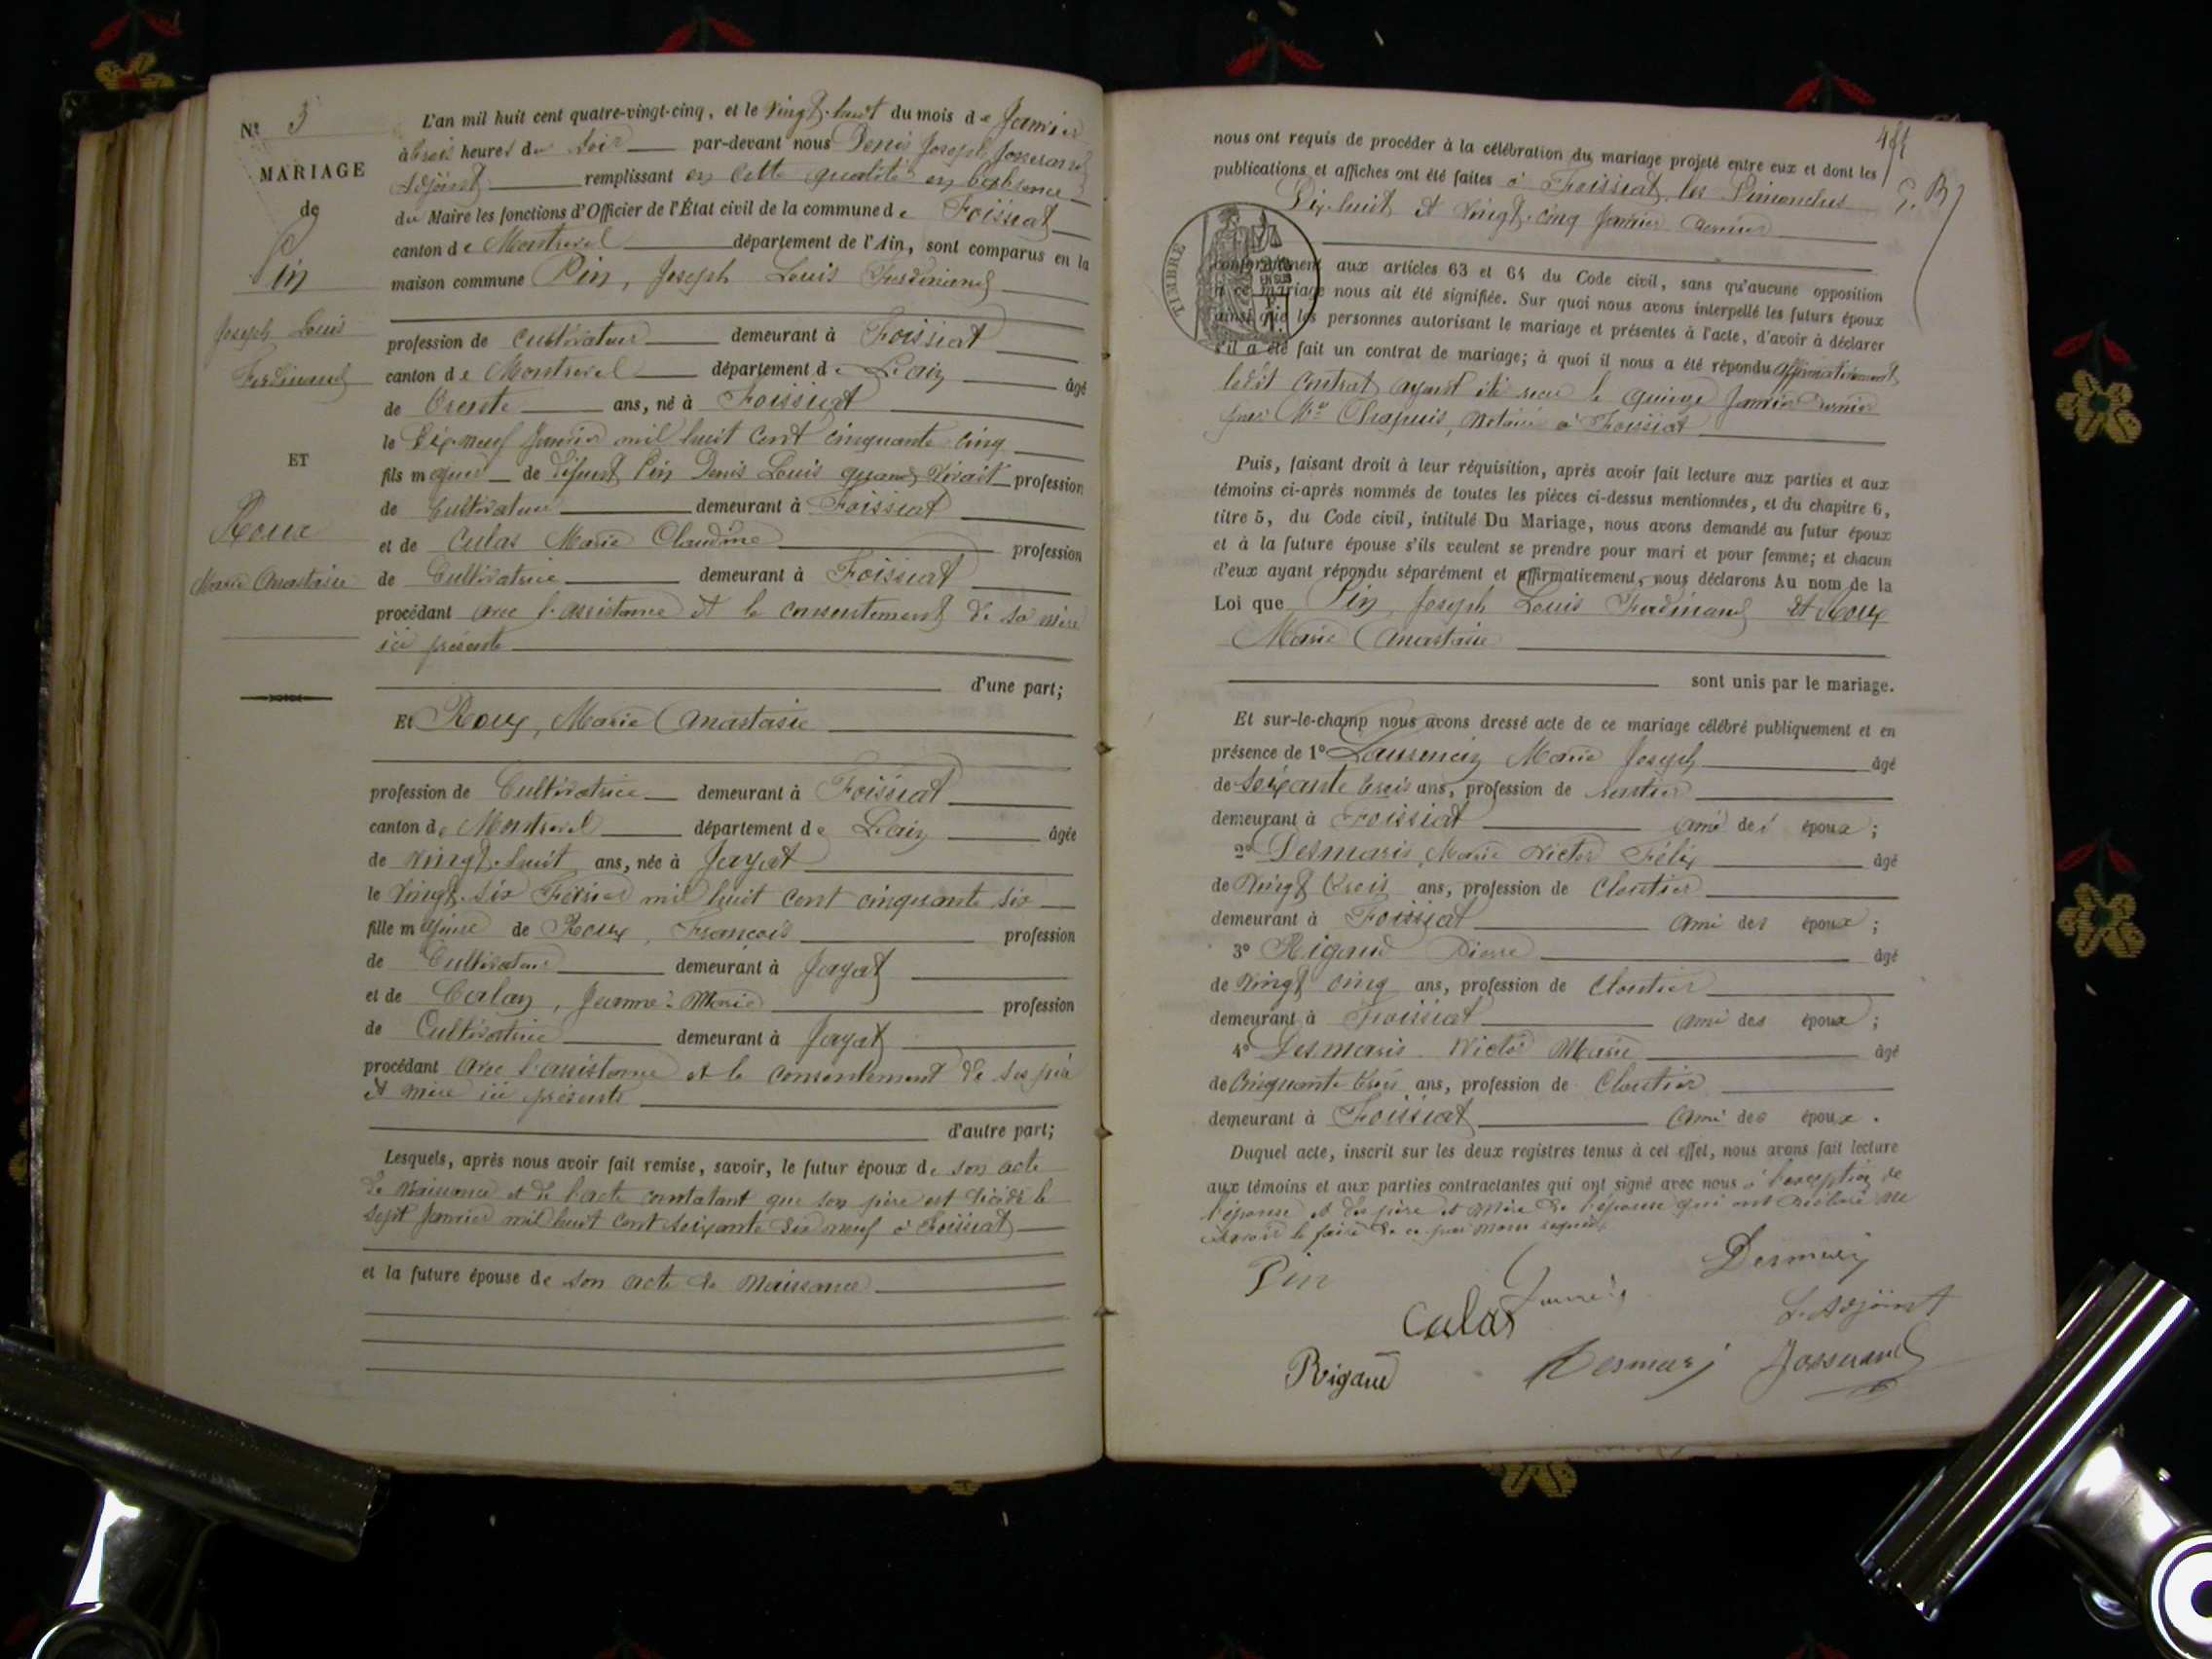 N° 3
MARIAGE
de
Pin
Joseph Louis
Ferdinand
ET
Roux
Marie Anastasie
L'an mil huit cent quatre-vingt-cinq, et le vingt-huit du mois de Janvier
à trois heures du soir par-devant nous Denis Joseph Josserand
Adjoint remplissant en cette qualité en l'absence
du Maire les fonctions d'Officier de l'État civil de la commune de Foissiat
canton de Montrevel département de l'Ain, sont comparus en la
maison commune Pin, Joseph Louis Ferdinand
profession de Cultivateur demeurant à Foissiat
canton de Montrevel département de L'ain âgé
de trente ans, né à Foissiat
le Dix-neuf Janvier mil huit cent cinquante cinq
fils majeur de défunt Pin Denis Louis quand vivait profession
de Cultivateur demeurant à Foissiat
et de Culas Marie Claudine profession
de Cultivatrice demeurant à Foissiat
procédant avec l'assistance et le consentement de sa mère
ici présente
d'une part;
Et Roux, Marie Anastasie
profession de Cultivatrice demeurant à Foissiat
canton de Montrevel département de L'ain âgée
de vingt-huit ans, née à Jayat
le vingt-six Février mil huit cent cinquante six
fille majeure de Roux, François profession
de Cultivateur demeurant à Jayat
et de Jeanne-Marie profession
de Cultivatrice demeurant à Jayat
procédant avec l'assistance et le consentement de ses père
et mère ici présents
d'autre part;
Lesquels, après nous avoir fait remise, savoir, le futur époux de son acte
de Naissance et de l'acte constatant que son père est décédé le
sept Janvier mil huit cent soixante dix neuf à Foissiat
et la future épouse de son acte de Naissance
nous ont requis de procéder à la célébration du mariage projeté entre eux et dont les
publications et affiches ont été faites à Foissiat les Dimanches
Dix-huit et vingt-cinq Janvier dernier
TIMBRE
conformément aux articles 63 et 64 du Code civil, sans qu'aucune opposition
à ce mariage nous ait été signifiée. Sur quoi nous avons interpellé les futurs époux
ainsi que les personnes autorisant le mariage et présentes à l'acte, d'avoir à déclarer
s'il a été fait un contrat de mariage; à quoi il nous a été répondu affirmativement
ledit contrat ayant été reçu le quinze Janvier dernier
par Me Chapuis, Notaire à Foissiat
Puis, faisant droit à leur réquisition, après avoir fait lecture aux parties et aux
témoins ci-après nommés de toutes les pièces ci-dessus mentionnées, et du chapitre 6,
titre 5, du Code civil, intitulé Du Mariage, nous avons demandé au futur époux
et à la future épouse s'ils veulent se prendre pour mari et pour femme; et chacun
d'eux ayant répondu séparément et affirmativement, nous déclarons Au nom de la
Loi que Pin Joseph Louis Ferdinand et Roux
Marie Anastasie
sont unis par le mariage.
Et sur-le-champ nous avons dressé acte de ce mariage célébré publiquement et en
présence de 1° Laurencin Marie Joseph âgé
de soixante trois ans, profession de rentier
demeurant à Foissiat ami des époux;
2° Desmaris, Marie Victor Félix âgé
de vingt trois ans, profession de Cloutier
demeurant à Foissiat ami des époux;
3° Rigaud Pierre âgé
de vingt cinq ans, profession de Cloutier
demeurant à Foissiat ami des époux;
4° Desmaris Victor Marie âgé
de cinquante trois ans, profession de Cloutier
demeurant à Foissiat ami des époux.
Duquel acte, inscrit sur les deux registres tenus à cet effet, nous avons fait lecture
aux témoins et aux parties contractantes qui ont signé avec nous à l'exception de
l'épouse et des père et mère de l'épouse qui ont déclaré ne
savoir le faire de ce par nous requis
Pin
Desmaris
Culas
L'adjoint
Rigaud
Desmaris
Josserand